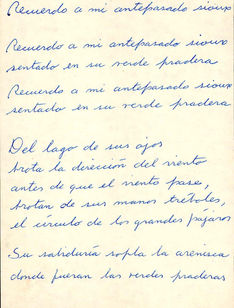 Recuerdo a mi antepasado sioux
Recuerdo a mi antepasado sioux
sentado en su verde pradera
Recuerdo a mi antepasado sioux
sentado en su verde pradera
Del lago de sus ojos
brota la dirección del viento
antes de que el viento pase,
brotan de sus manos tréboles,
el círculo de los grandes pájaros
Su sabiduría sopla la arenisca
donde fueran las verdes praderas